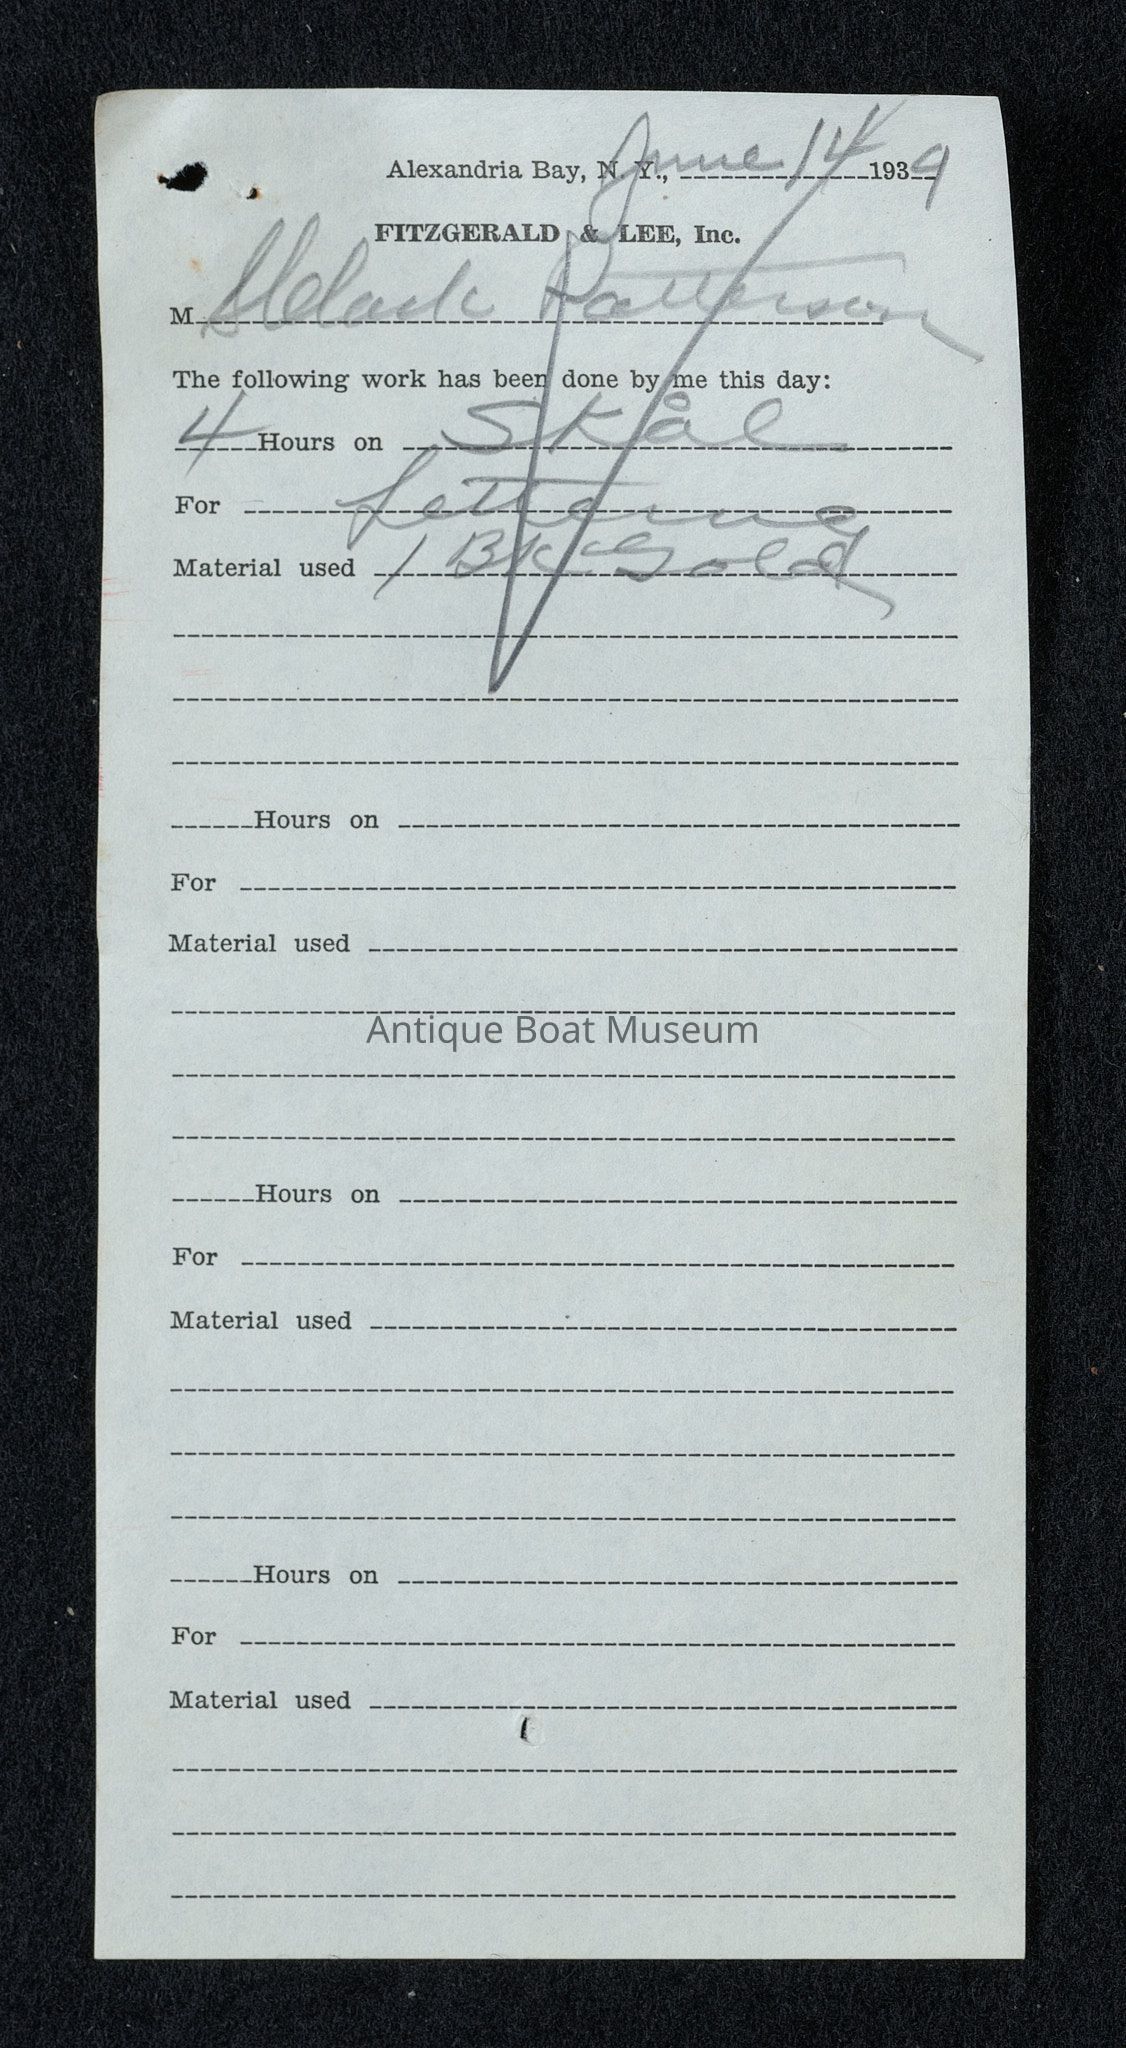 Alexandria Bay, N. Y., June 14 1939
FITZGERALD & LEE, Inc.
M Patterson
The following work has been done by me this day:
4 Hours on Skål
For Lettering
Material used 1 BK Gold
Hours on
For
Material used
Antique Boat Museum
Hours on
For
Material used
Hours on
For
Material used